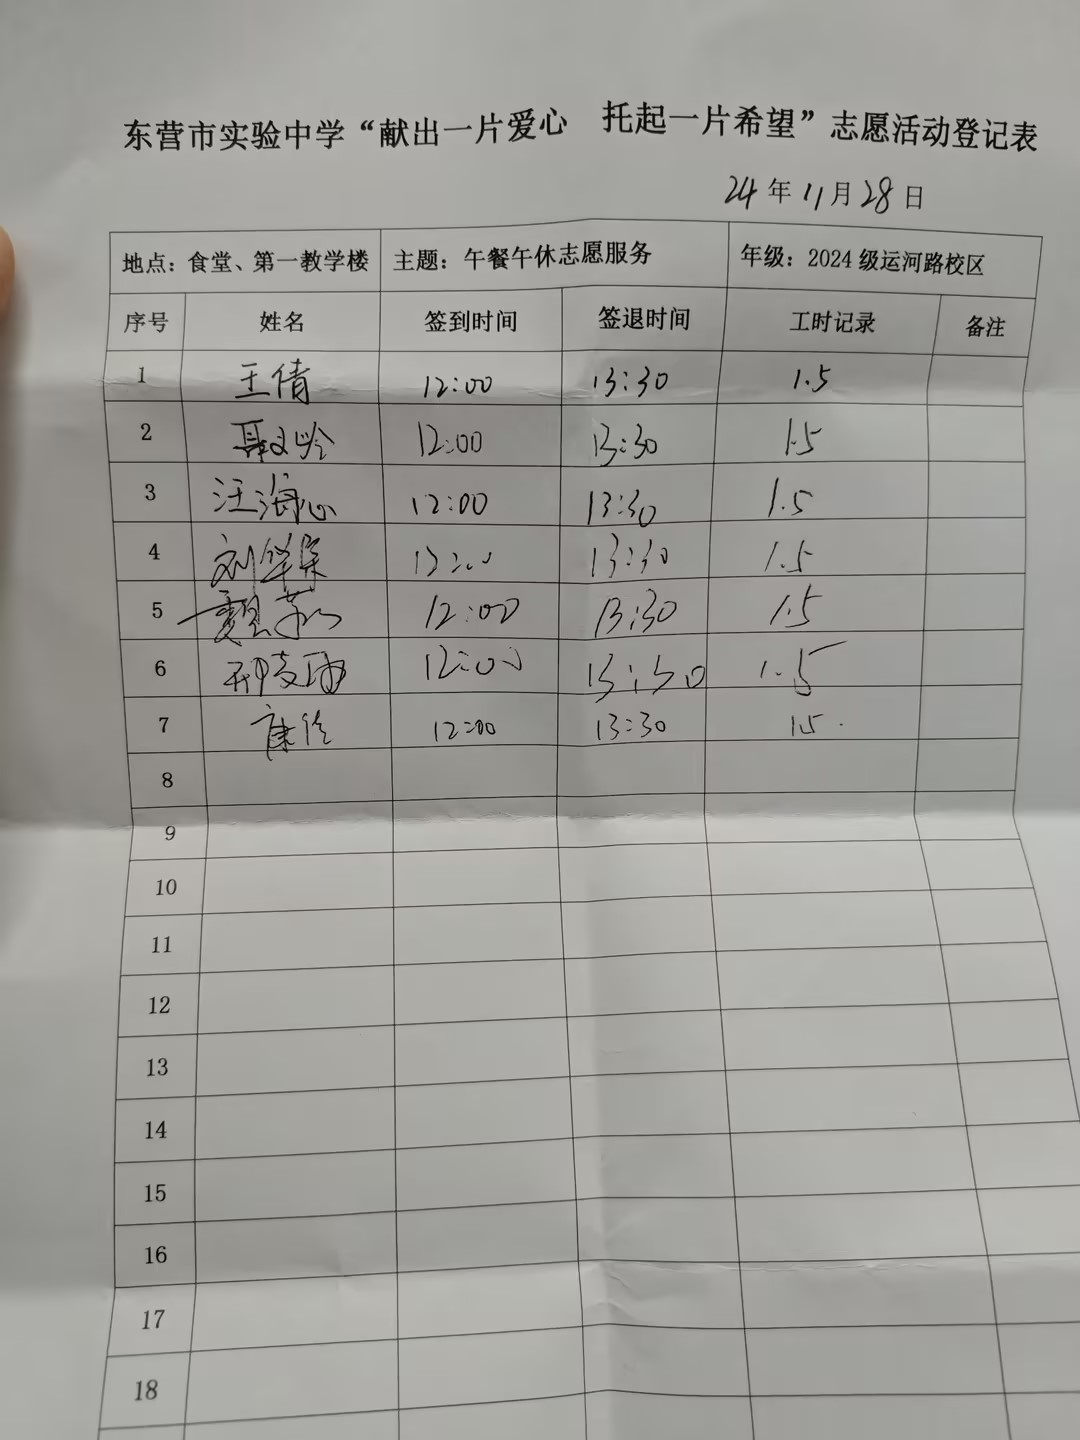 东营市实验中学“献出一片爱心 托起一片希望”志愿活动登记表
24年11月28日
地点：食堂、第一教学楼 主题：午餐午休志愿服务 年级：2024级运河路校区
序号 姓名 签到时间 签退时间 工时记录 备注
1 王倩 12:00 13:30 1.5
2 12:00 13:30 1.5
3 汪海心 12:00 13:30 1.5
4 刘 13:30 1.5
5 魏 12:00 13:30 1.5
6 邢 12:00 13:30 1.5
7 康 12:00 13:30 1.5
8
9
10
11
12
13
14
15
16
17
18